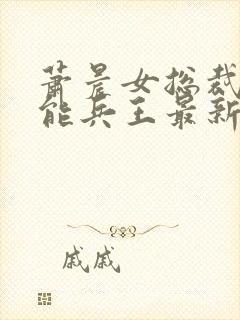 萧晨女总裁
能兵王最新
戚戚